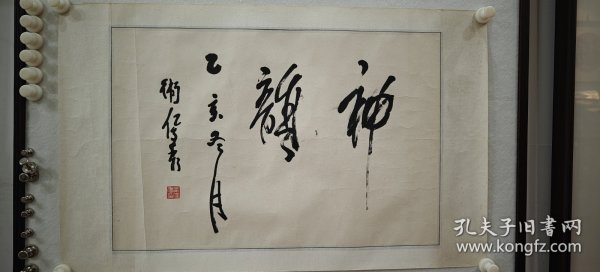 神
龍
乙亥冬月
孔夫子旧書网
www.kongfz.com